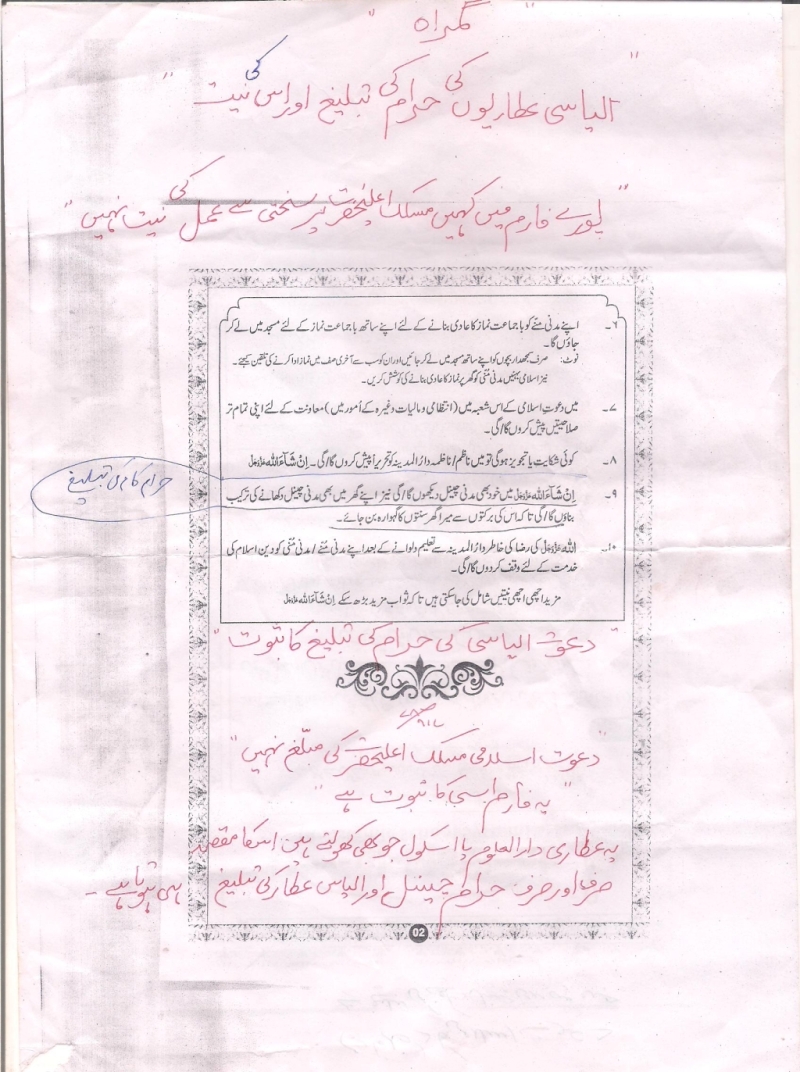 " گمراہ "
" الیاسی عطاریوں کی حرام کی تبلیغ اور اس کی نیت "
" پورے فارم میں کہیں مسلک اعلیٰحضرت پر سختی سے عمل کی نیت نہیں "
۶۔ اپنے مدنی منّے کو با جماعت نماز کا عادی بنانے کے لئے اپنے ساتھ با جماعت نماز کے لئے مسجد میں لے کر
جاؤں گا۔
نوٹ: صرف سمجھدار بچوں کو اپنے ساتھ مسجد میں لے کر جائیں اور ان کو سب سے آخری صف میں نماز ادا کرنے کی تلقین کیجئے۔
نیز اسلامی بہنیں مدنی مُنّی کو گھر پر نماز کا عادی بنانے کی کوشش کریں۔
۷۔ میں دعوتِ اسلامی کے اس شعبہ میں (انتظامی و مالیات وغیرہ کے اُمور میں) معاونت کے لئے اپنی تمام تر
صلاحیتیں پیش کروں گا/گی۔
۸۔ کوئی شکایت یا تجویز ہوگی تو میں ناظم/ناظمہ دارُ المدینہ کو تحریراً پیش کروں گا/گی۔ اِنْ شَآءَ اللّٰہ عَزَّوَجَلَّ
حرام کام کی تبلیغ
۹۔ اِنْ شَآءَ اللّٰہ عَزَّوَجَلَّ میں خود بھی مدنی چینل دیکھوں گا/گی نیز اپنے گھر میں بھی مدنی چینل دکھانے کی ترکیب
بناؤں گا/گی تاکہ اس کی برکتوں سے میرا گھر سنتوں کا گہوارہ بن جائے۔
۱۰۔ اللّٰہ عَزَّوَجَلَّ کی رضا کی خاطر دارُ المدینہ سے تعلیم دلوانے کے بعد اپنے مدنی مُنّے/مدنی مُنّی کو دین اسلام کی
خدمت کے لئے وقف کردوں گا/گی۔
مزید اچھی اچھی نیتیں شامل کی جاسکتی ہیں تاکہ ثواب مزید بڑھ سکے اِنْ شَآءَ اللّٰہ عَزَّوَجَلَّ
" دعوت الیاسی کی حرام کی تبلیغ کا ثبوت "
" دعوت اسلامی مسلک اعلیٰحضرت کی مبلّغ نہیں "
" یہ فارم اسی کا ثبوت ہے "
یہ عطاری دارالعلوم یا اسکول جو بھی کھولتے ہیں اسکا مقصد
صرف اور صرف حرام چینل اور الیاس عطار کی تبلیغ ہی ہوتا ہے۔
02